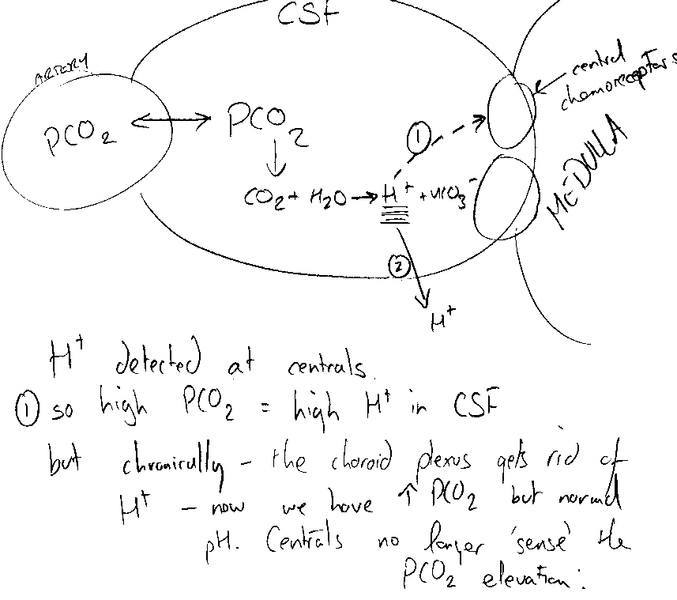 CSF
ARTERY
central
chemoreceptors
PCO₂ ↔ PCO₂
①
CO₂ + H₂O → H⁺ + HCO₃⁻
MEDULLA
②
H⁺
H⁺ detected at centrals.
① so high PCO₂ = high H⁺ in CSF
but chronically - the choroid plexus gets rid of
H⁺ - now we have ↑ PCO₂ but normal
pH. Centrals no longer 'sense' the
PCO₂ elevation.